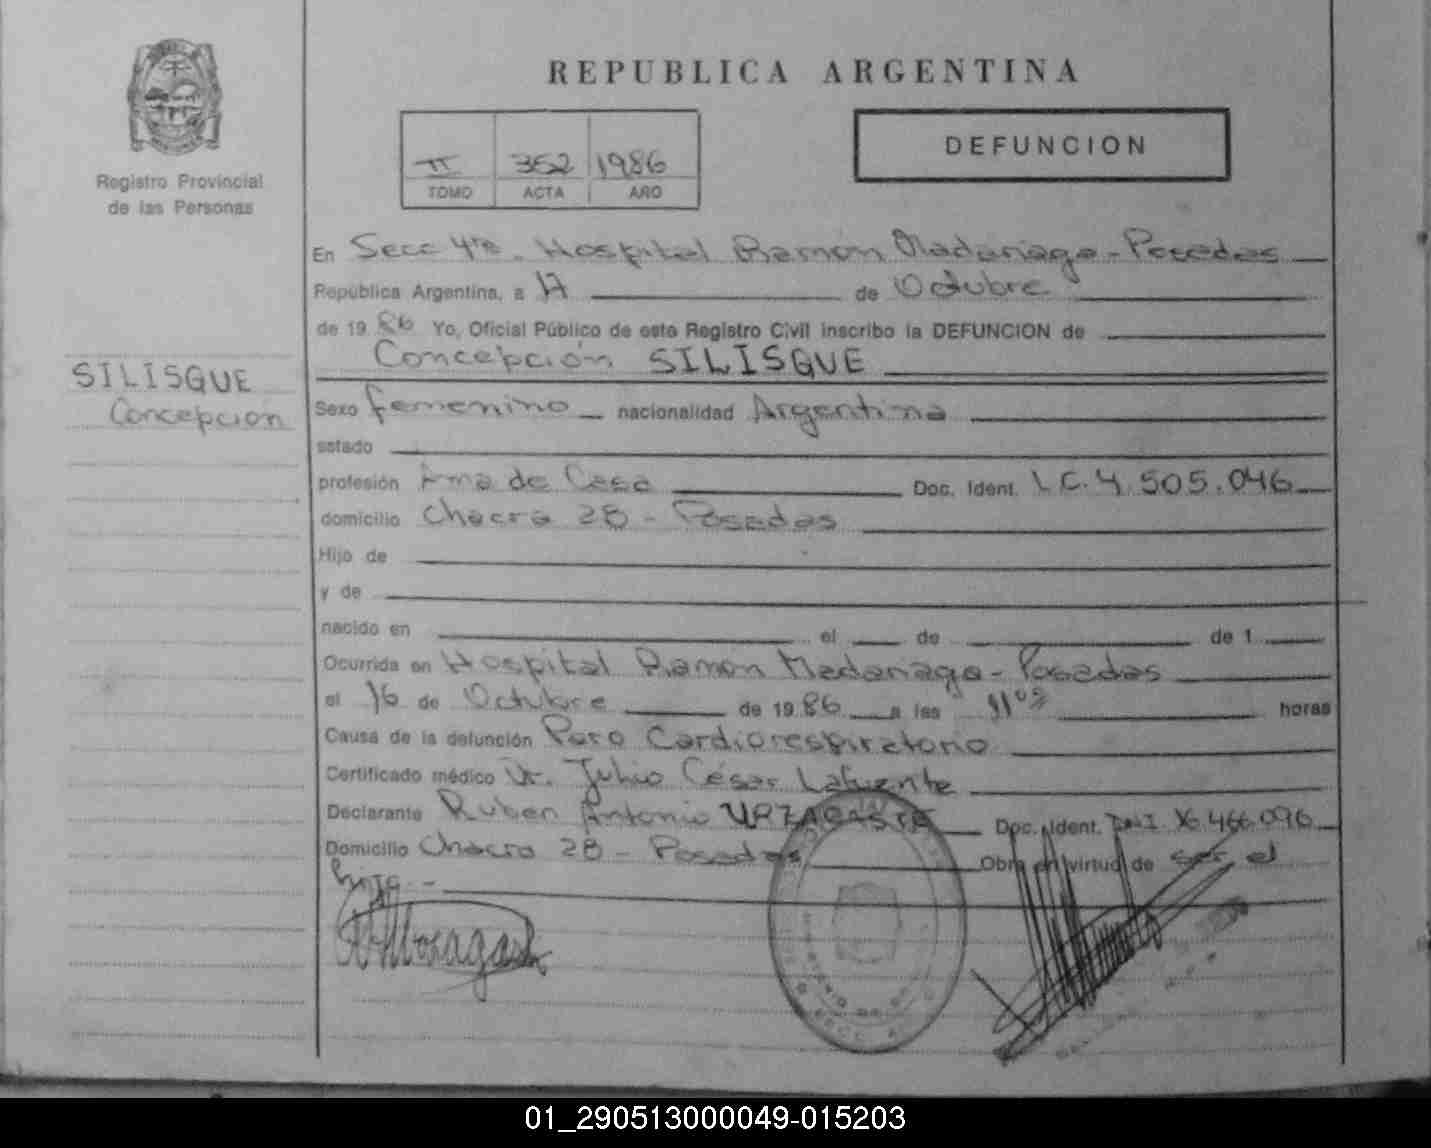 REPUBLICA ARGENTINA
DEFUNCION
II 352 1986
TOMO ACTA AÑO
Registro Provincial
de las Personas
SILISQUE
Concepcion
En Secc 4ta. Hospital Ramón Madariaga - Posadas
República Argentina, a 17 de Octubre
de 19 86 Yo, Oficial Público de este Registro Civil inscribo la DEFUNCION de
Concepción SILISQUE
Sexo femenino nacionalidad Argentina
estado
profesión Ama de Casa Doc. Ident. L.C. 4.505.046
domicilio Chacra 28 - Posadas
Hijo de
y de
nacido en el de de 1
Ocurrida en Hospital Ramon Madariaga - Posadas
el 16 de Octubre de 19 86 a las 11 horas
Causa de la defunción Paro Cardiorespiratorio
Certificado médico Dr. Julio César Lafuente
Declarante Ruben Antonio Doc. Ident. DNI 16.466.096
Domicilio Chacra 28 - Posadas Obra en virtud de ser el
01_290513000049-015203